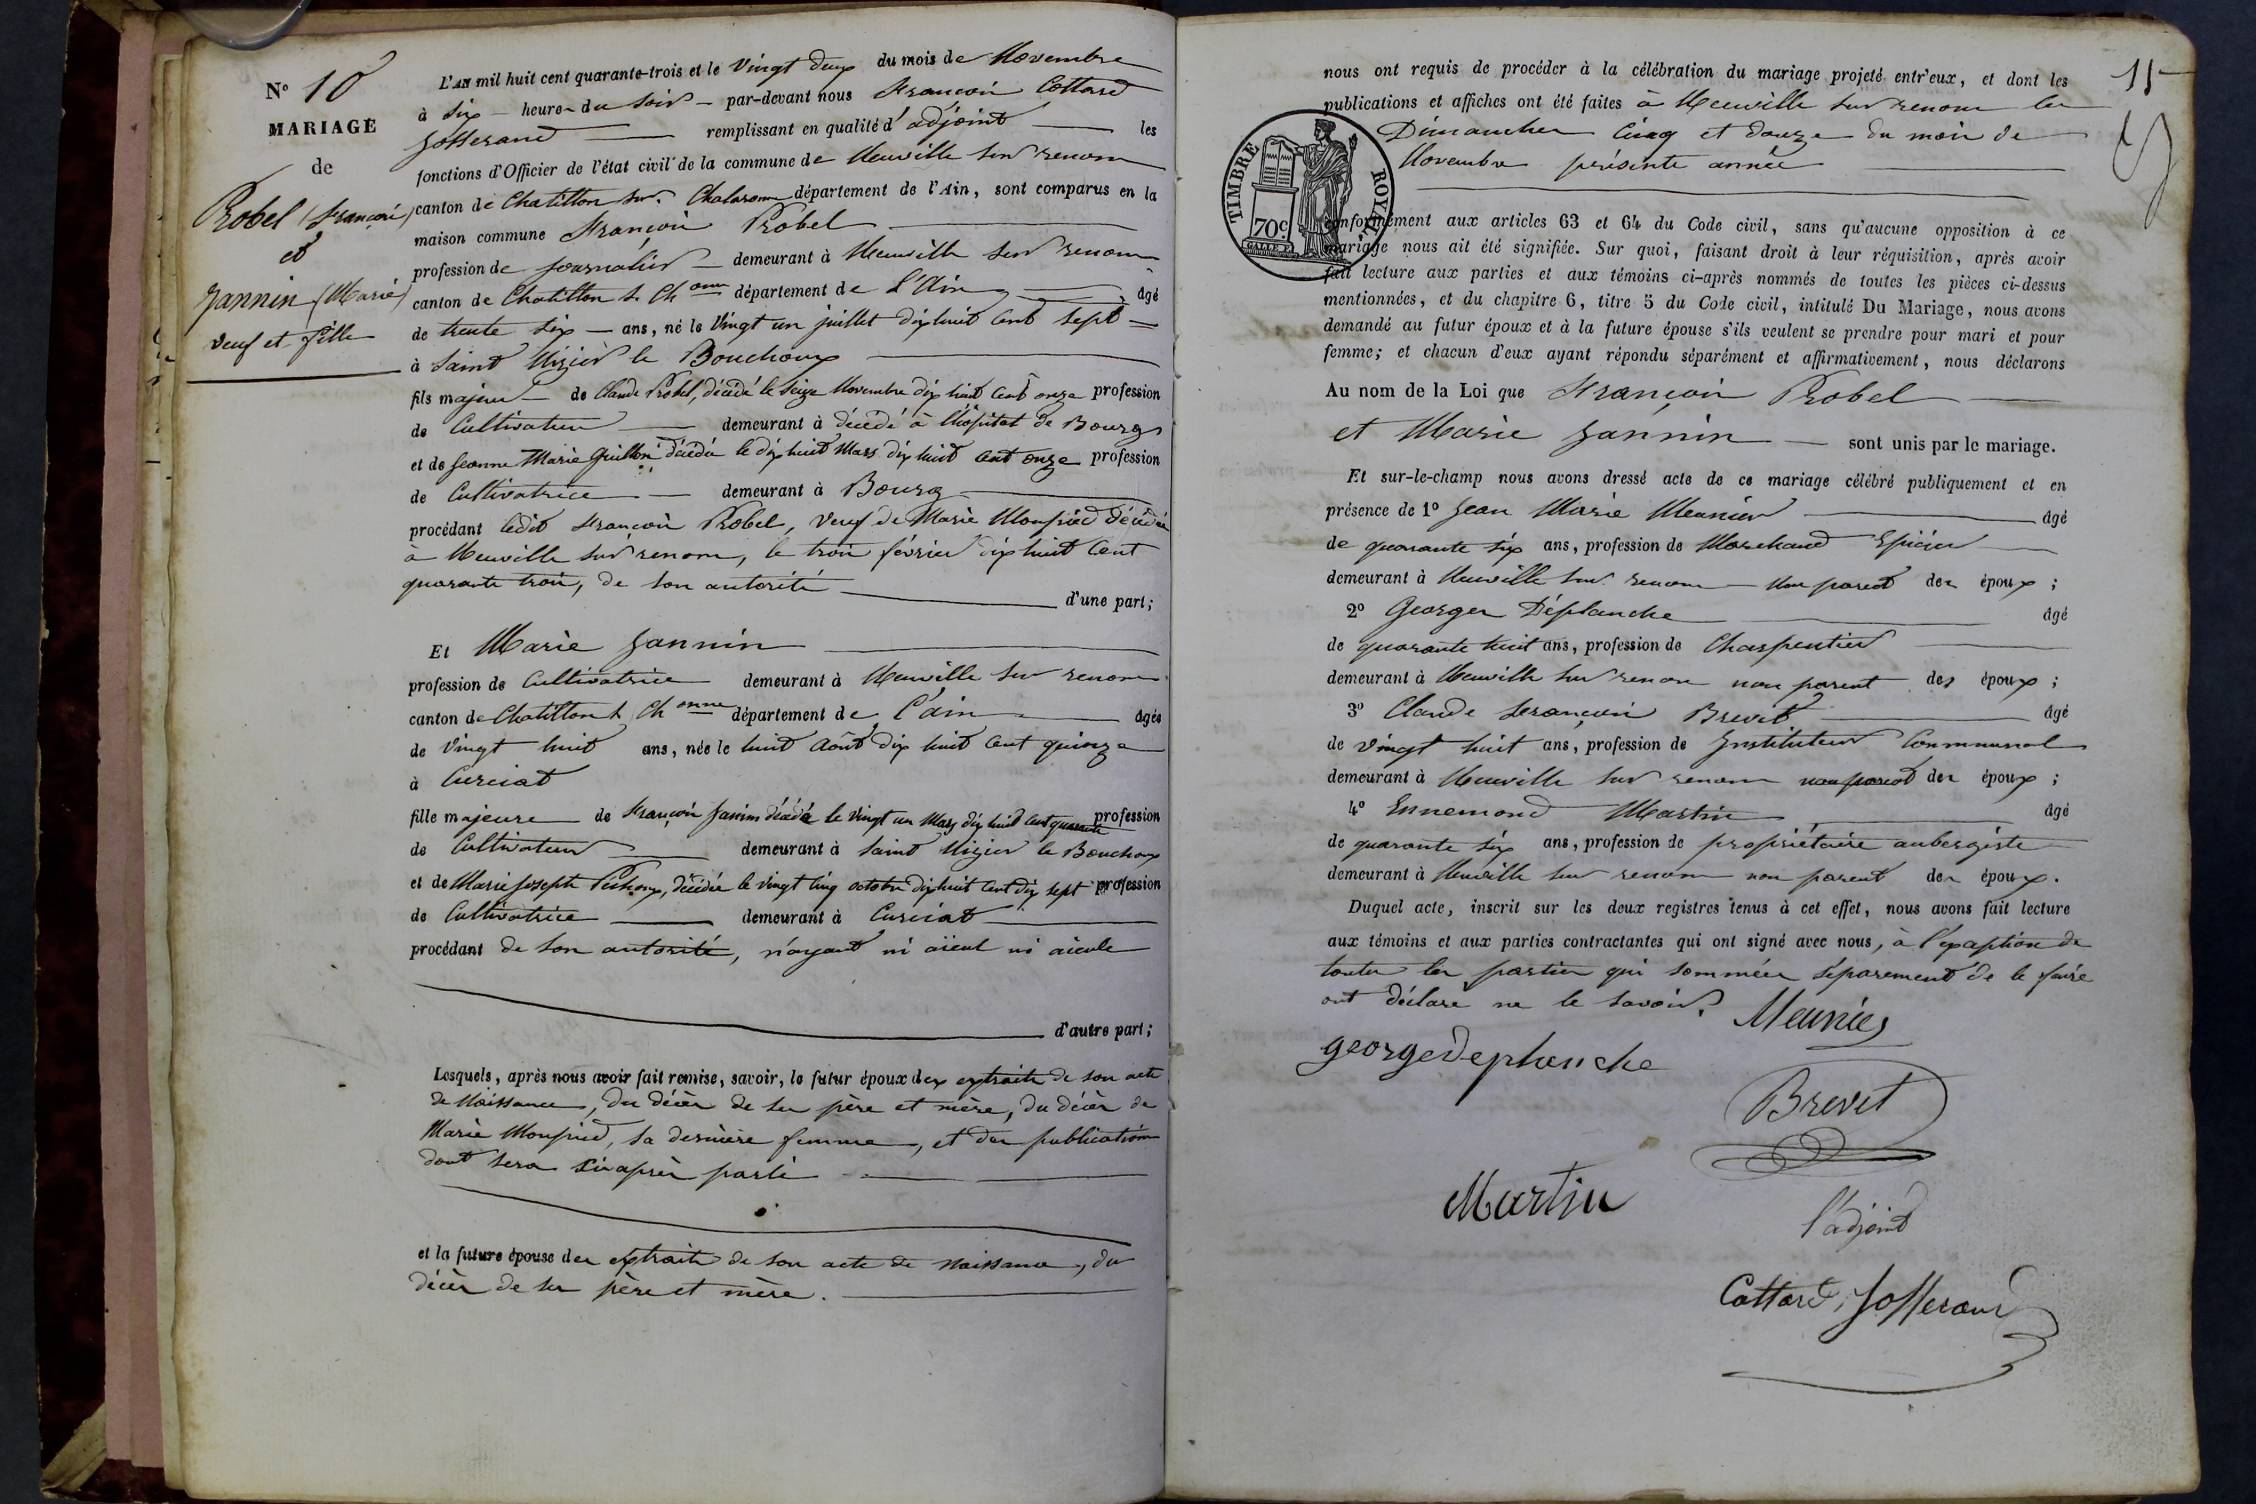 N° 10
MARIAGE
de
Probel (François)
et
Jannin (Marie)
veuf et fille
L'AN mil huit cent quarante-trois et le vingt deux du mois de Novembre
à six heures du soir par-devant nous François Cottard
Josserand remplissant en qualité d'adjoint les
fonctions d'Officier de l'état civil de la commune de Neuville sur renom
canton de Chatillon sur Chalaronne département de l'Ain, sont comparus en la
maison commune François Probel
profession de journalier demeurant à Neuville sur renom
canton de Chatillon s. Chonne département de L'Ain âgé
de trente six ans, né le vingt un juillet dix huit cent sept
à Saint Nizier le Bouchoux
fils majeur de Claude Probel, décédé le seize Novembre dix huit cent onze profession
de Cultivateur demeurant à décédé à l'hôpital de Bourg
et de Jeanne Marie Guillon décédée le dix huit Mars dix huit cent onze profession
de Cultivatrice demeurant à Bourg
procédant ledit François Probel, veuf de Marie Monpied décédée
à Neuville sur renom, le trois février dix huit cent
quarante trois, de son autorité d'une part;
Et Marie Jannin
profession de Cultivatrice demeurant à Neuville sur renom
canton de Chatillon s. Chonne département de L'ain âgée
de vingt huit ans, née le huit Août dix huit cent quinze
à Curciat
fille majeure de François Janin décédé le vingt un Mars dix huit cent quarante profession
de Cultivateur demeurant à Saint Nizier le Bouchoux
et de Marie Joseph Pechoux, décédée le vingt cinq octobre dix huit cent dix sept profession
de Cultivatrice demeurant à Curciat
procédant de son autorité, n'ayant ni aïeul ni aïeule
d'autre part;
Lesquels, après nous avoir fait remise, savoir, le futur époux des extraits de son acte
de Naissance, du décès de ses père et mère, du décès de
Marie Monpied, sa dernière femme, et des publications
dont sera ci après parlé
et la future épouse des extraits de son acte de naissance, du
décès de ses père et mère.
15
nous ont requis de procéder à la célébration du mariage projeté entr'eux, et dont les
publications et affiches ont été faites à Neuville sur renom les
Dimanches cinq et douze du mois de
Novembre présente année
TIMBRE ROYAL
70 c.
conformément aux articles 63 et 64 du Code civil, sans qu'aucune opposition à ce
mariage nous ait été signifiée. Sur quoi, faisant droit à leur réquisition, après avoir
fait lecture aux parties et aux témoins ci-après nommés de toutes les pièces ci-dessus
mentionnées, et du chapitre 6, titre 5 du Code civil, intitulé Du Mariage, nous avons
demandé au futur époux et à la future épouse s'ils veulent se prendre pour mari et pour
femme; et chacun d'eux ayant répondu séparément et affirmativement, nous déclarons
Au nom de la Loi que François Probel
et Marie Jannin sont unis par le mariage.
Et sur-le-champ nous avons dressé acte de ce mariage célébré publiquement et en
présence de 1° Jean Marie Meunier âgé
de quarante six ans, profession de Marchand Epicier
demeurant à Neuville sur renom non parent des époux;
2° Georges Déplanche âgé
de quarante huit ans, profession de Charpentier
demeurant à Neuville sur renom non parent des époux;
3° Claude François Brevet âgé
de vingt huit ans, profession de Instituteur Communal
demeurant à Neuville sur renom non parent des époux;
4° Ennemond Martin âgé
de quarante six ans, profession de propriétaire aubergiste
demeurant à Neuville sur renom non parent des époux.
Duquel acte, inscrit sur les deux registres tenus à cet effet, nous avons fait lecture
aux témoins et aux parties contractantes qui ont signé avec nous, à l'exception de
toutes les parties qui sommées séparement de le faire
ont déclaré ne le savoir.
Meunier
george deplanche
Brevet
Martin
l'adjoint
Cottard, Josserand